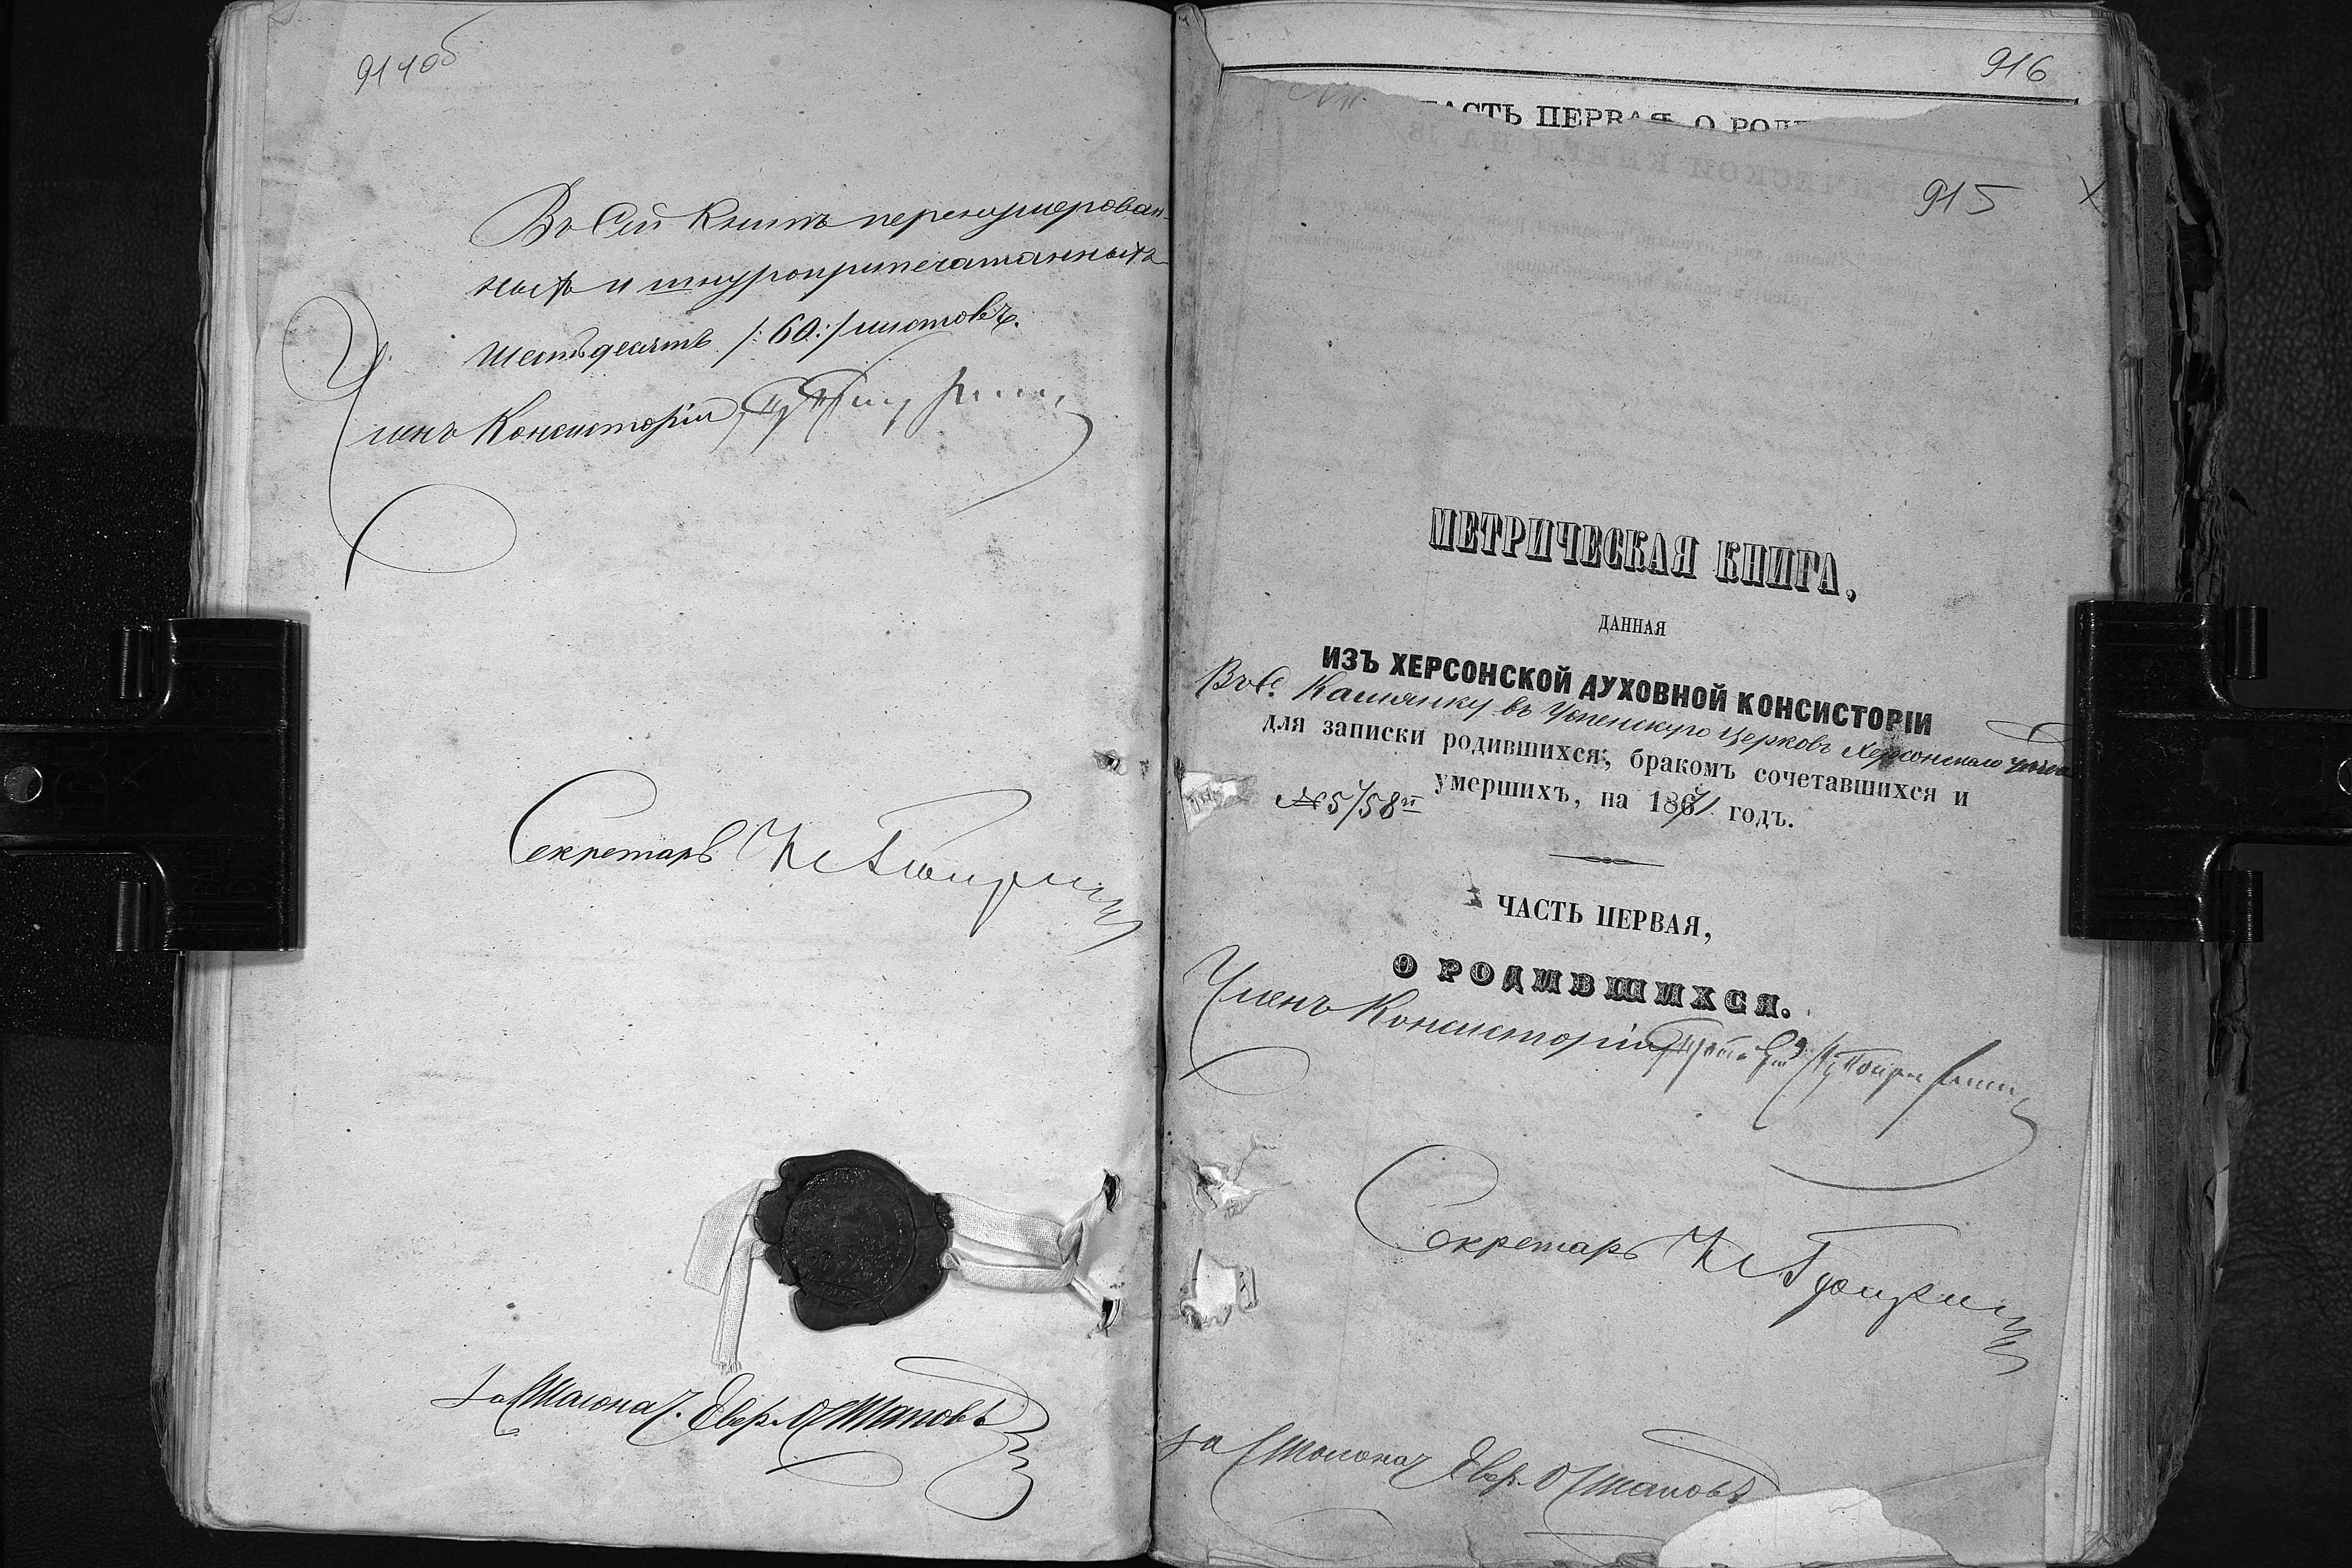 914об
Въ Сей Книгѣ перенумерован-
ныхъ и шнуроприпечатанныхъ
шестьдесятъ /:60:/ листовъ.
Членъ Консисторіи
Секретарь
За Столонач.
916
ЧАСТЬ ПЕРВАЯ, О РОДИ
915 X
МЕТРИЧЕСКАЯ КНИГА,
ДАННАЯ
ИЗЪ ХЕРСОНСКОЙ ДУХОВНОЙ КОНСИСТОРІИ
Въ с. Камянку въ Успенскую церковь Херсонскаго уѣзда
для записки родившихся, бракомъ сочетавшихся и
умершихъ, на 1871 годъ.
№ 5/58й
ЧАСТЬ ПЕРВАЯ,
О РОДИВШИХСЯ.
Членъ Консисторіи
Секретарь
За Столонач